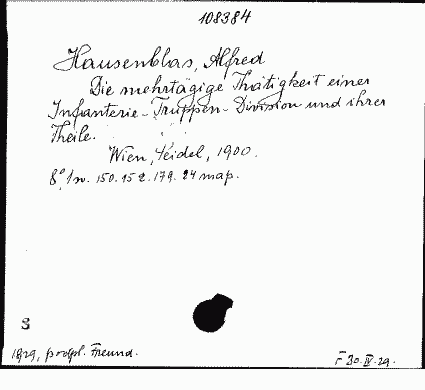 108384
Hausenblas, Alfred
Die mehrtägige Thätigkeit einer
Infanterie-Truppen-Division und ihrer
Theile.
Wien, Seidel, 1900.
8°, 150. 152. 179. 24 map.
S
1929, Freund.
30. IV. 29.